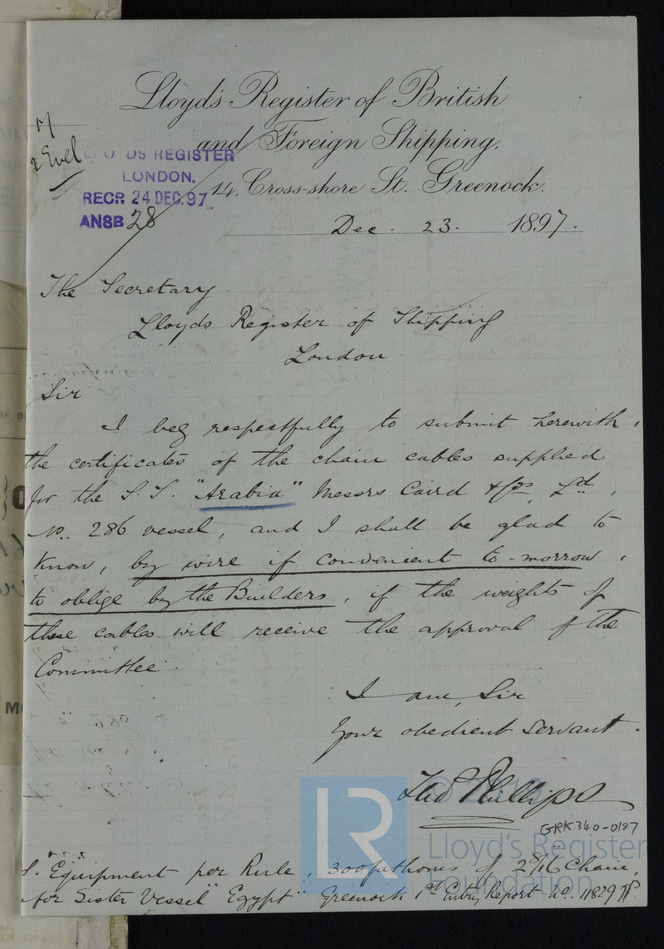 Lloyd's Register of British
and Foreign Shipping.
14. Cross-shore St. Greenock.
LLOYDS REGISTER
LONDON.
RECR 24 DEC. 97
ANSB 28
Dec. 23. 1897.
The Secretary
Lloyds Register of Shipping
London
Sir
I beg respectfully to submit herewith,
the certificates of the chain cables supplied
for the S.S. "Arabia" Messrs Caird & Co, Ltd,
No. 286 vessel, and I shall be glad to
know, by wire if convenient to-morrow,
to oblige by the Builders, if the weights of
these cables will receive the approval of the
Committee.
I am, Sir
Your obedient servant.
Phillips
GRK340-0197
LR
© 2019
Lloyd's Register
Foundation
S. Equipment per Rule, 300 fathoms of 2 9/16 Chain,
for Sister Vessel "Egypt" Greenock 1st Entry Report No. 11829